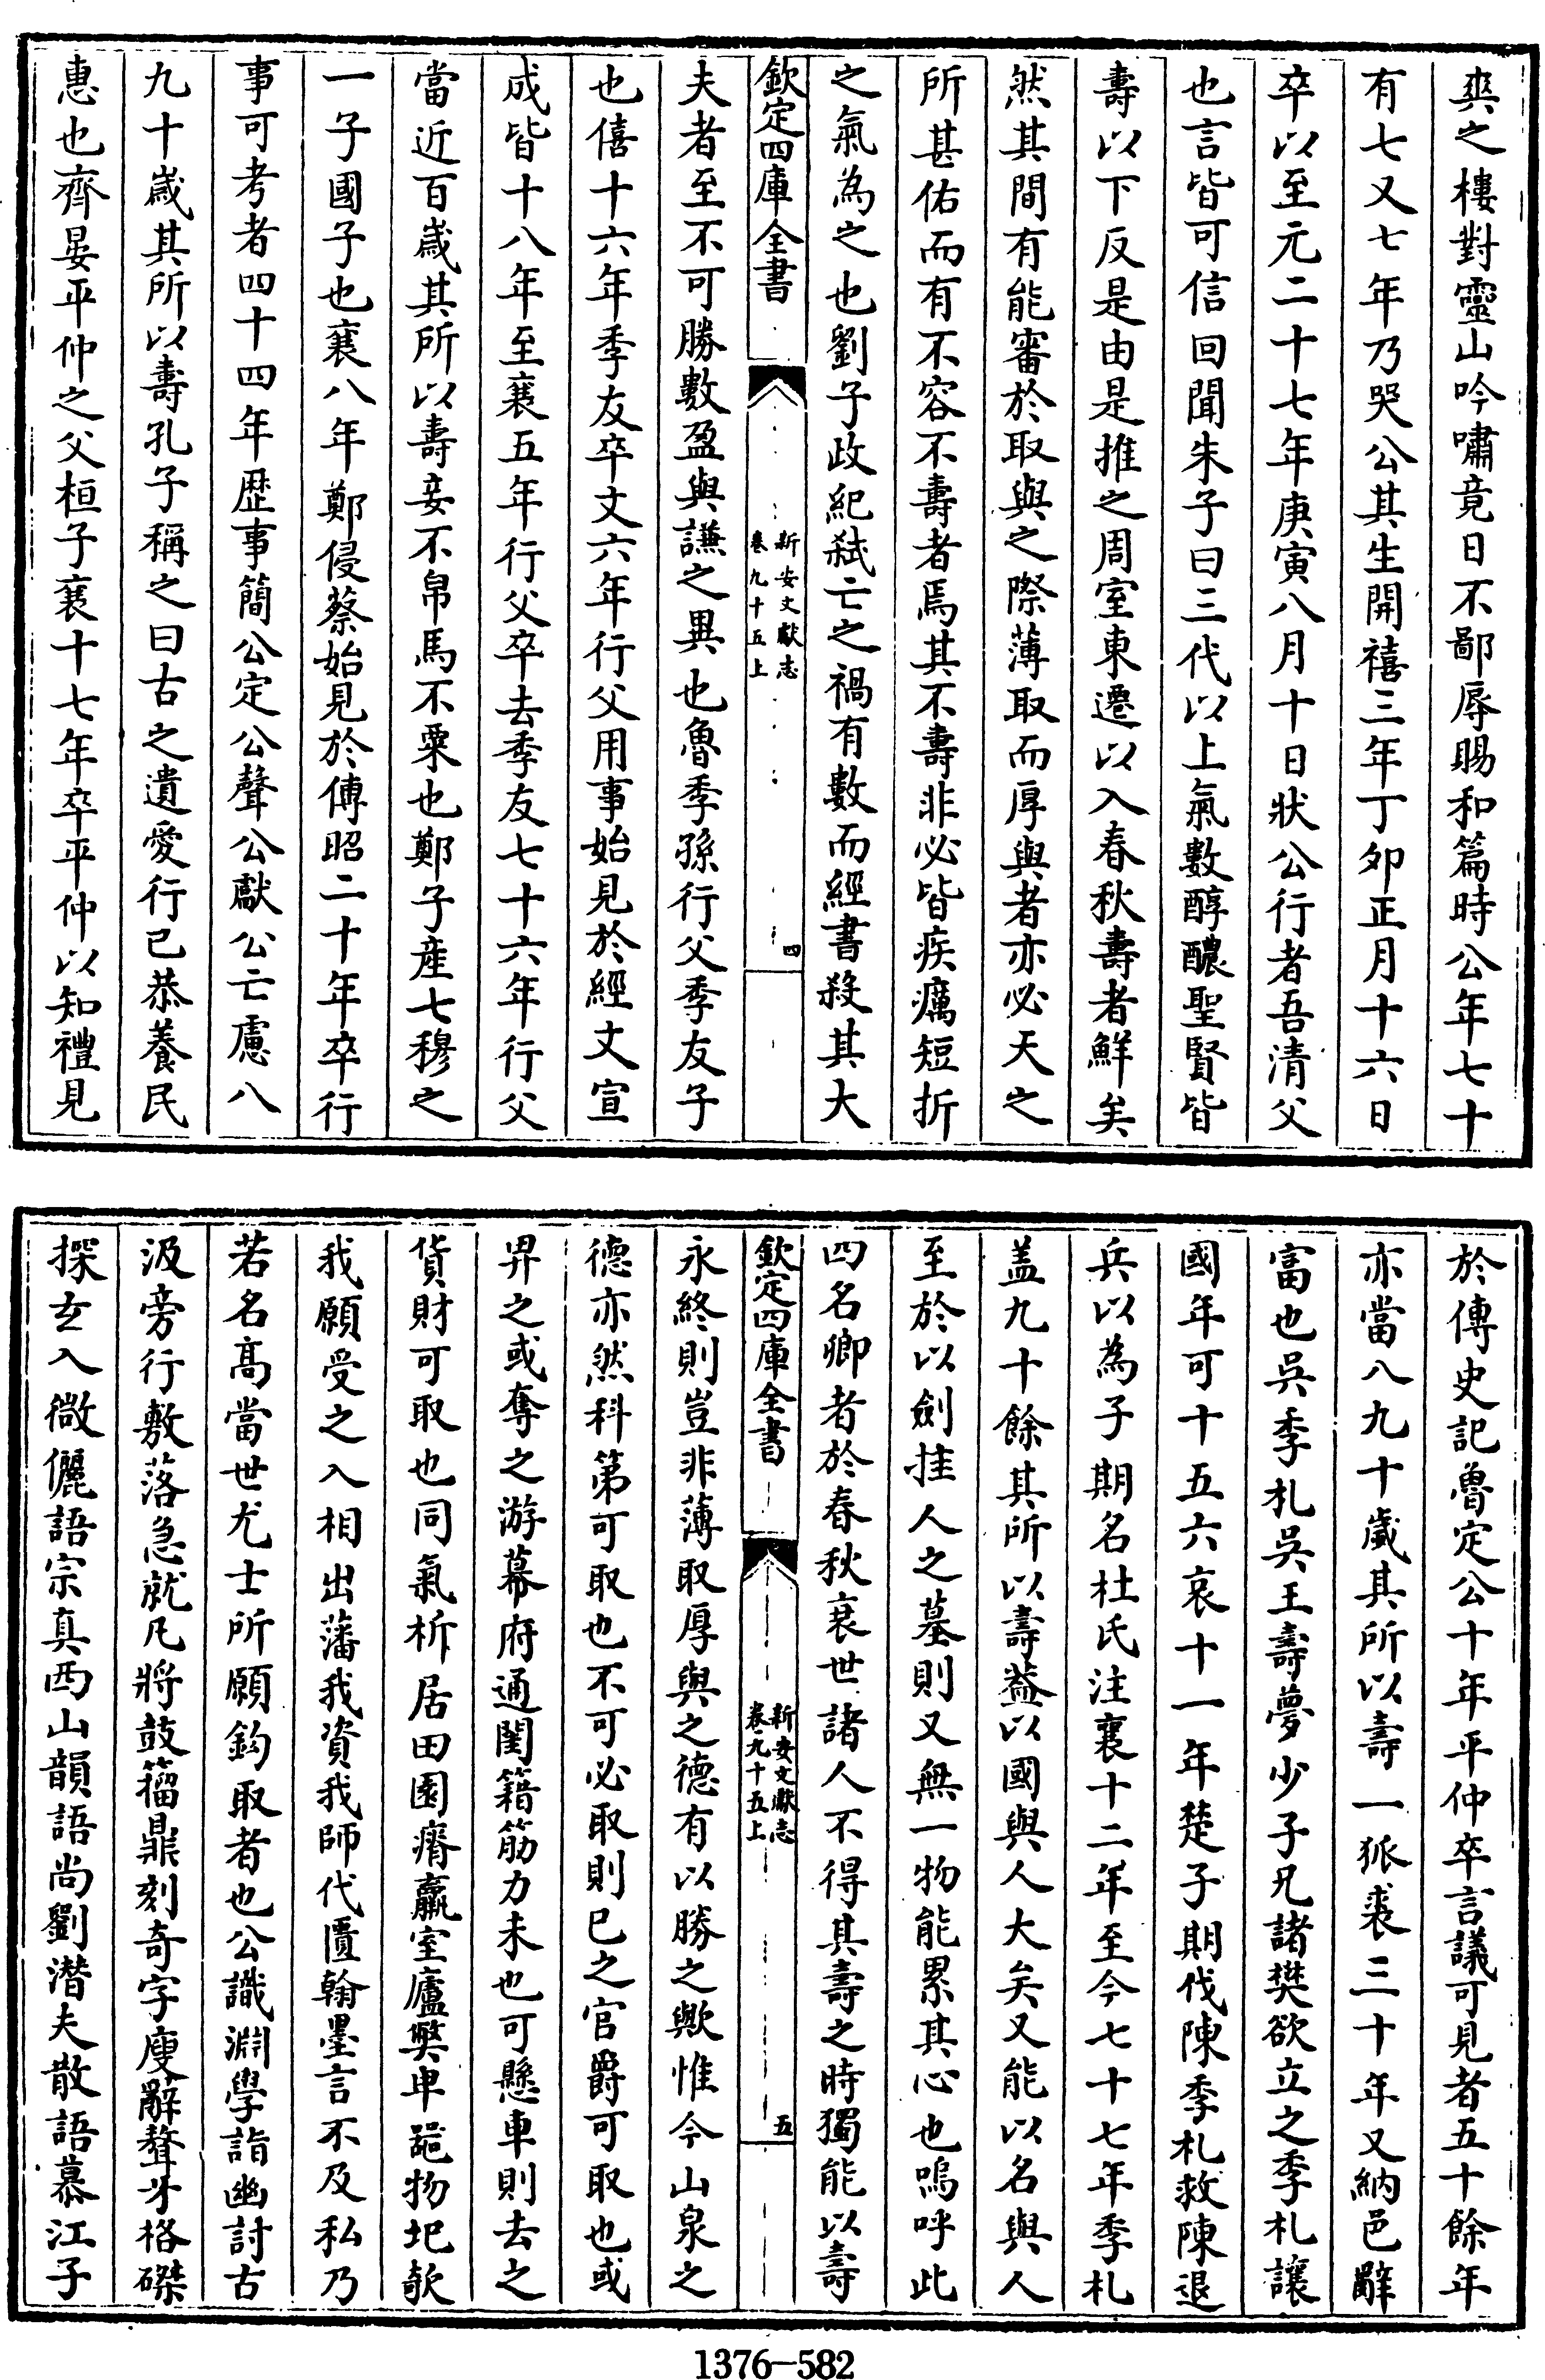 爽之樓對靈山吟嘯竟日不鄙辱賜和篇時公年七十
有七又七年乃哭公其生開禧三年丁夘正月十六日
卒以至元二十七年庚寅八月十日狀公行者吾清父
也言皆可信回聞朱子曰三代以上氣數醇醲聖賢皆
壽以下反是由是推之周室東遷以入春秋壽者鮮矣
然其間有能審於取與之際薄取而厚與者亦必天之
所甚佑而有不容不壽者焉其不壽非必皆疾癘短折
之氣為之也劉子政紀弑亡之禍有數而經書殺其大
欽定四庫全書
新安文獻志
卷九十五上
四
夫者至不可勝數盈與謙之異也魯季孫行父季友子
也僖十六年季友卒文六年行父用事始見於經文宣
成皆十八年至襄五年行父卒去季友七十六年行父
當近百嵗其所以壽妾不帛馬不粟也鄭子產七穆之
一子國子也襄八年鄭侵蔡始見於傳昭二十年卒行
事可考者四十四年歴事簡公定公聲公獻公亡慮八
九十嵗其所以壽孔子稱之曰古之遺愛行己恭養民
惠也齊晏平仲之父桓子襄十七年卒平仲以知禮見
於傳史記魯定公十年平仲卒言議可見者五十餘年
亦當八九十歲其所以壽一狐裘三十年又納邑辭
富也吳季札吳王壽夢少子兄諸樊欲立之季札讓
國年可十五六哀十一年楚子期伐陳季札救陳退
兵以為子期名杜氏注襄十二年至今七十七年季札
盖九十餘其所以壽葢以國與人大矣又能以名與人
至於以劍挂人之墓則又無一物能累其心也嗚呼此
四名卿者於春秋衰世諸人不得其壽之時獨能以壽
欽定四庫全書
新安文獻志
卷九十五上
五
永終則豈非薄取厚與之德有以勝之歟惟今山泉之
德亦然科第可取也不可必取則已之官爵可取也或
畀之或奪之游幕府通閨籍筋力未也可懸車則去之
貨財可取也同氣析居田園瘠羸室廬獘卑噐物圮欹
我願受之入相出藩我資我師代匱翰墨言不及私乃
若名高當世尤士所願鈎取者也公識淵學詣幽討古
汲旁行敷落急就凡將鼓籀鼎刻奇字廋辭聱牙格磔
探𤣥入微儷語宗真西山韻語尚劉潛夫散語慕江子
1376—582